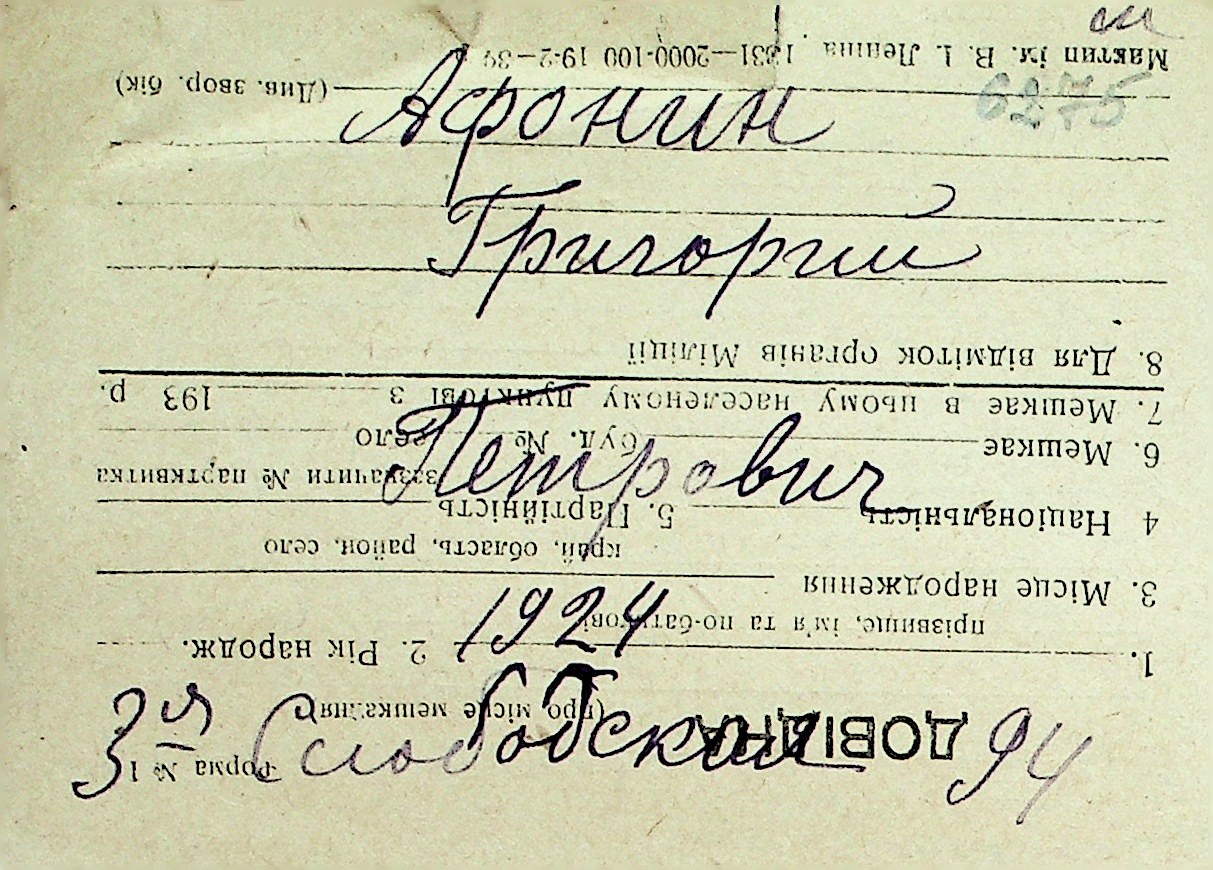 6275
Афонин
Григорий
Петрович
1924
3я Слободская 94
ДОВІДКА
Форма № 1
(про місце мешкання)
1.
2. Рік народж.
прізвище, ім'я та по-батькові
3. Місце народження
край, область, район, село
4 Національність
5. Партійність
зазначити № партквитка
6. Мешкає
буд. №
село
7. Мешкає в цьому населеному пунктові з 193 р.
8. Для відміток органів Міліції
(Див. звор. бік)
Мактип ім. В. І. Леніна, 1831—2000-100 19-2-39